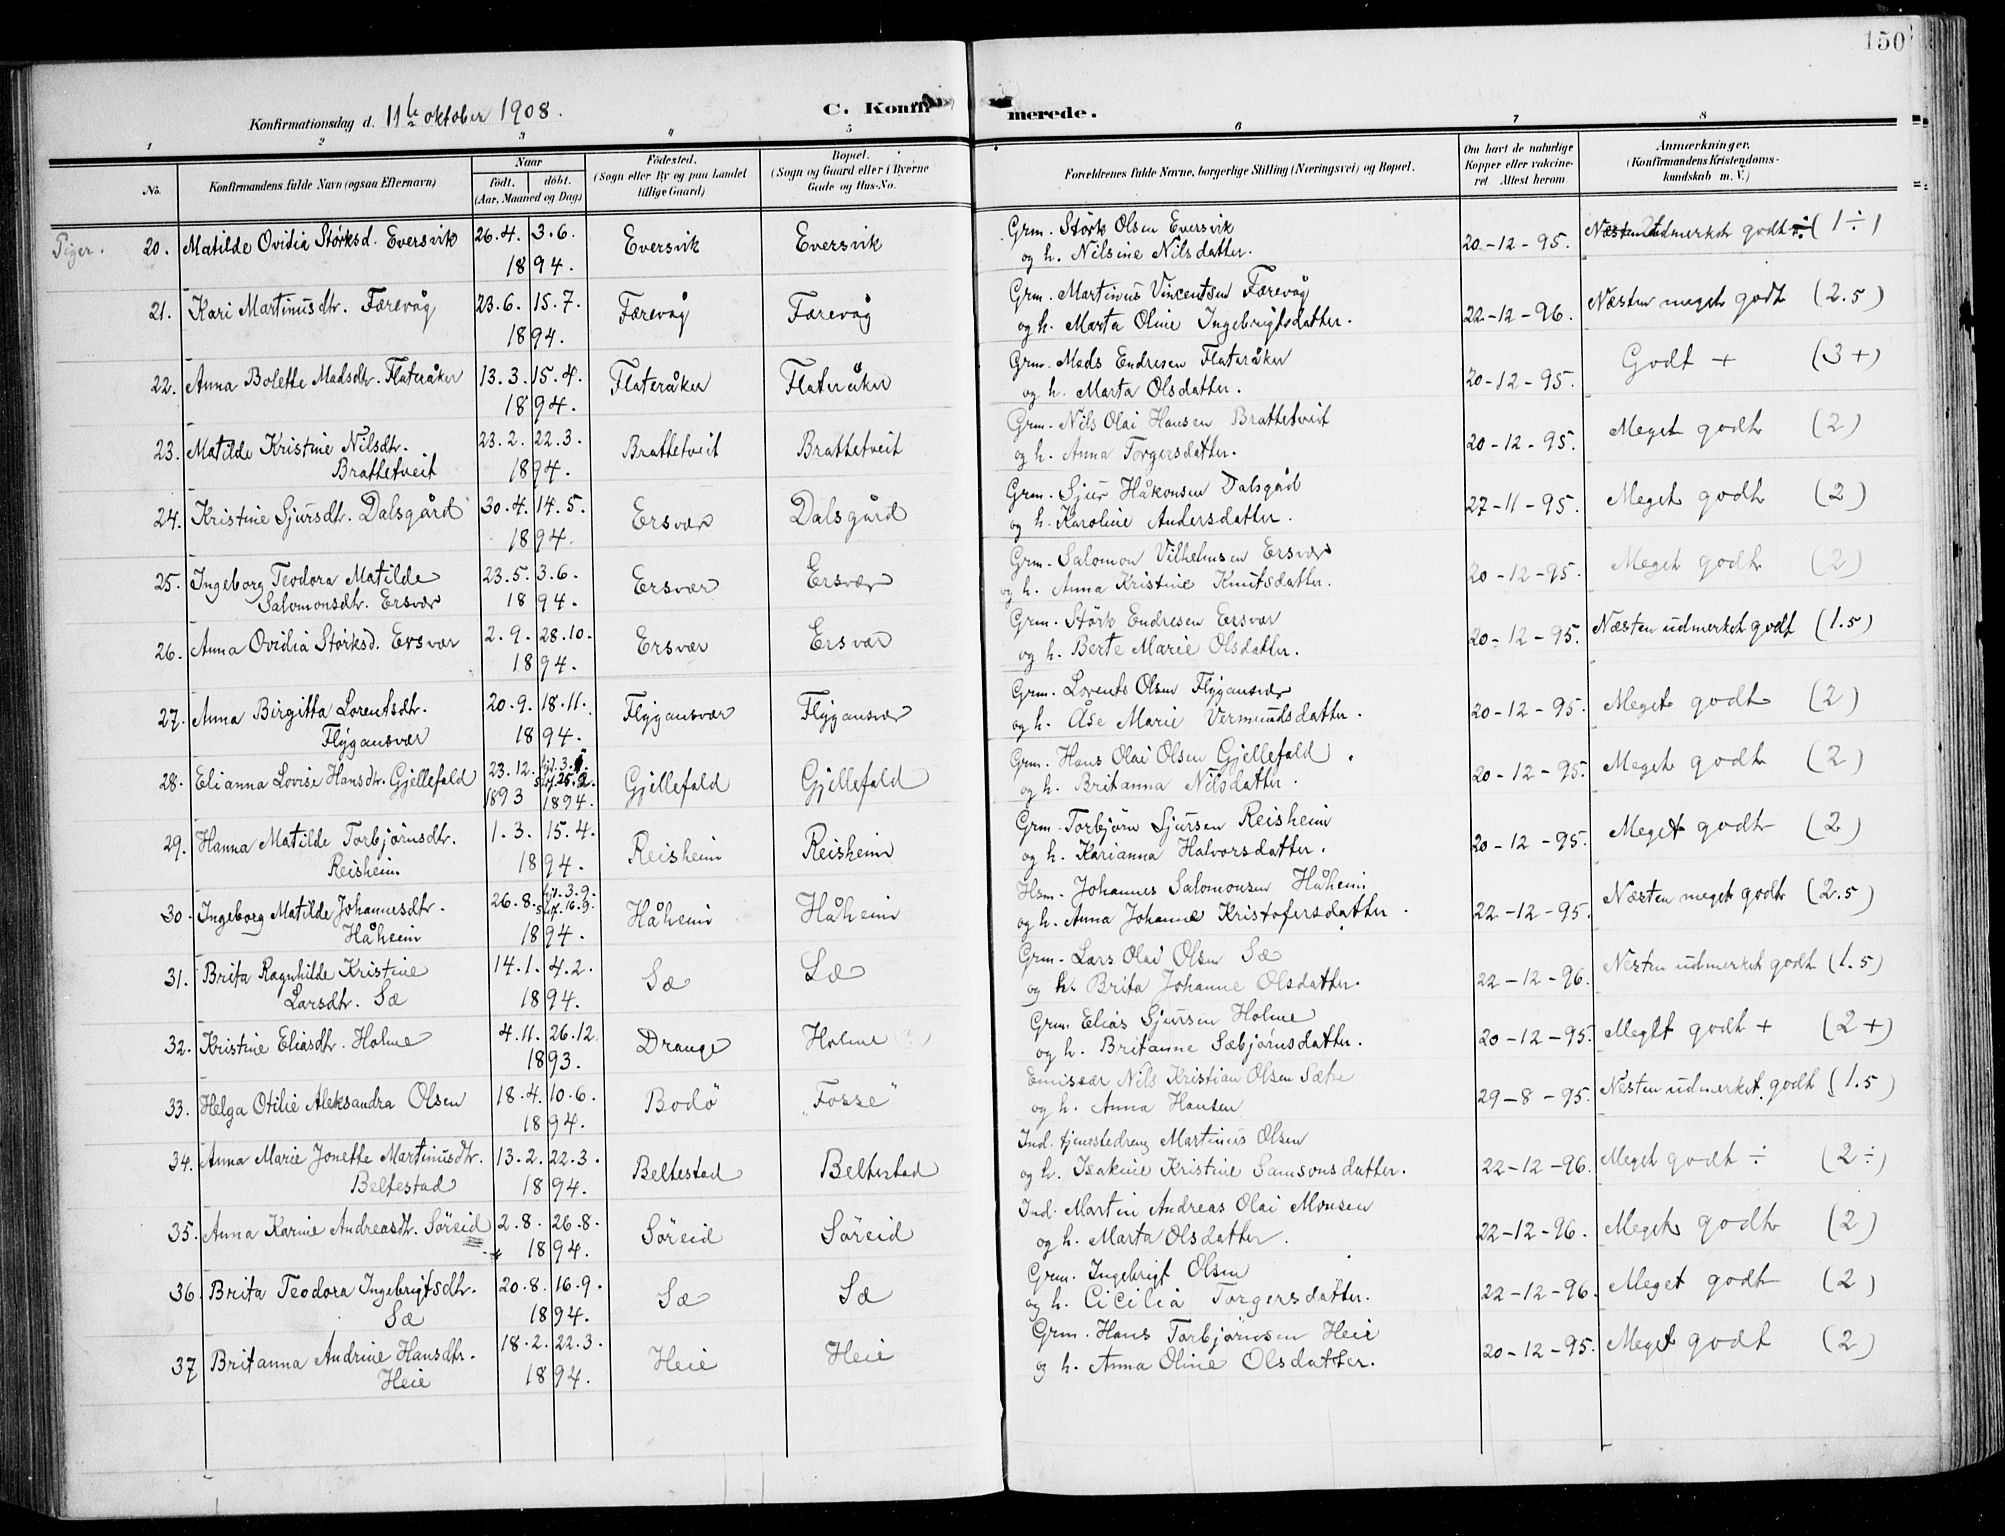 150
Konfirmationsdag d. 11te oktober 1908. C. Konfirmerede.
1 2 3 4 5 6 7 8
No. Konfirmandens fulde Navn (ogsaa Efternavn) Naar født. døbt. (Aar, Maaned og Dag) Fødested. (Sogn eller By og paa Landet tillige Gaard) Bopæl. (Sogn og Gaard eller i Byerne Gade og Hus-No. Forældrenes fulde Navne, borgerlige Stilling (Næringsvei) og Bopæl. Om havt de naturlige Kopper eller vakcineret Attest herom Anmærkninger. (Konfirmandens Kristendomskundskab m. V.)
Piger. 20. Matilde Ovidia Størksd. Eversvik 26.4. 3.6. 1894. Eversvik Eversvik Grm. Størk Olsen Eversvik
og h. Nilsine Nilsdatter. 20-12-95. Næsten udmerket godt ÷ (1÷)
21. Kari Martinusdtr. Færevåg 23.6. 15.7. 1894. Færevåg Færevåg Grm. Martinus Vincentsen Færevåg
og h. Marta Oline Ingebrigtsdatter. 22-12-96. Næsten meget godt (2.5)
22. Anna Bolette Madsdtr. Flateråker 13.3. 15.4. 1894. Flateråker Flateråker Grm. Mads Endresen Flateråker
og h. Marta Olsdatter. 20-12-95. Godt + (3+)
23. Matilde Kristine Nilsdtr. 23.2. 22.3. Brattetveit Brattetveit Grm. Nils Olai Hansen Brattetveit
Brattetveit 1894. og h. Anna Torgersdatter. 20-12-95. Meget godt (2)
24. Kristine Sjursdtr. Dalsgård 30.4. 14.5. 1894. Ersvær Dalsgård Grm. Sjur Håkonsen Dalsgård
og h. Karoline Andersdatter. 27-11-95. Meget godt (2)
25. Ingeborg Teodora Matilde 23.5. 3.6. Ersvær Ersvær Grm. Salomon Vilhelmsen Ersvær
Salomonsdtr. Ersvær 1894. og h. Anna Kristine Knutsdatter. 20-12-95. Meget godt (2)
26. Anna Ovidia Størksd. Ersvær 2.9. 28.10. 1894. Ersvær Ersvær Grm. Størk Endresen Ersvær
og h. Berte Marie Olsdatter. 20-12-95. Næsten udmerket godt (1.5)
27. Anna Birgitta Lorentsdtr. 20.9. 18.11. Flygansvær Flygansvær Grm. Lorents Olsen Flygansvær
Flygansvær 1894. og h. Åse Marie Vermundsdatter. 20-12-95. Meget godt (2)
28. Elianna Lovise Hansdtr. Gjellefald 23.12. 1893 hjd. 3.1. stf. 25.2. 1894. Gjellefald Gjellefald Grm. Hans Olai Olsen Gjellefald.
og h. Britanna Nilsdatter. 20-12-95. Meget godt (2)
29. Hanna Matilde Torbjørnsdtr. 1.3. 15.4. Reisheim Reisheim Grm. Torbjørn Sjursen Reisheim
Reisheim 1894. og h. Karianna Halvorsdatter. 20-12-95. Meget godt (2)
30. Ingeborg Matilde Johannesdtr. 26.8. hjd. 3.9. stf. 16.9. Håheim Håheim Hsm. Johannes Salomonsen Håheim
Håheim 1894. og h. Anna Johanne Kristofersdatter. 22-12-95. Næsten meget godt (2.5)
31. Brita Ragnhilde Kristine 14.1. 4.2. Sæ Sæ Grm. Lars Olai Olsen Sæ
Larsdtr. Sæ 1894. og h. Brita Johanne Olsdatter. 22-12-96. Nesten udmerket godt (1.5)
32. Kristine Eliasdtr. Holme 4.11. 26.12. 1893. Drange Holme Grm. Elias Sjursen Holme
og h. Britanne Sæbjørnsdatter. 20-12-95. Meget godt + (2+)
33. Helga Otilie Aleksandra Olsen 18.4. 10.6. 1894. Bodö Fosse Emissær Nils Kristian Olsen Sætre
og h. Anna Hansen 29-8-95. Nesten udmerket godt (1.5)
34. Anna Marie Jonette Martinusdtr. 13.2. 22.3. Beltestad Beltestad Ind. tjenestedreng Martinus Olsen
Beltestad 1894. og h. Isakine Kristine Samsonsdatter. 22-12-96. Meget godt ÷ (2÷)
35. Anna Karine Andreasdtr. Söreid 2.8. 26.8. 1894. Söreid Söreid Ind. Martin Andreas Olai Monsen
og h. Marta Olsdatter. 22-12-96. Meget godt (2)
36. Brita Teodora Ingebrigtsdtr. 20.8. 16.9. Sæ Sæ Grm. Ingebrigt Olsen
Sæ 1894. og h. Cicilia Torgersdatter. 22-12-96. Meget godt (2)
37 Britanna Andrine Hansdtr. 18.2. 22.3. Heie Heie Grm. Hans Torbjørnsen Heie
Heie 1894. og h. Anna Oline Olsdatter. 20-12-95. Meget godt (2)